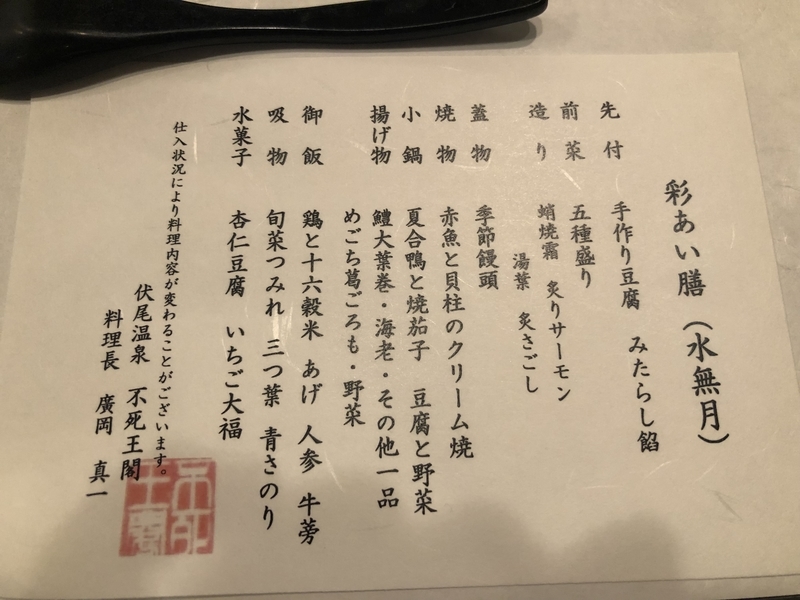 彩あい膳（水無月）
先付 手作り豆腐 みたらし餡
前菜 五種盛り
造り 蛸焼霜 炙りサーモン
湯葉 炙さごし
蓋物 季節饅頭
焼物 赤魚と貝柱のクリーム焼
小鍋 夏合鴨と焼茄子 豆腐と野菜
揚げ物 鱧大葉巻・海老・その他一品
めごち葛ごろも・野菜
御飯 鶏と十六穀米 あげ 人参 牛蒡
吸物 旬菜つみれ 三つ葉 青さのり
水菓子 杏仁豆腐 いちご大福
仕入状況により料理内容が変わることがございます。
伏尾温泉 不死王閣
料理長 廣岡 真一
不死王閣